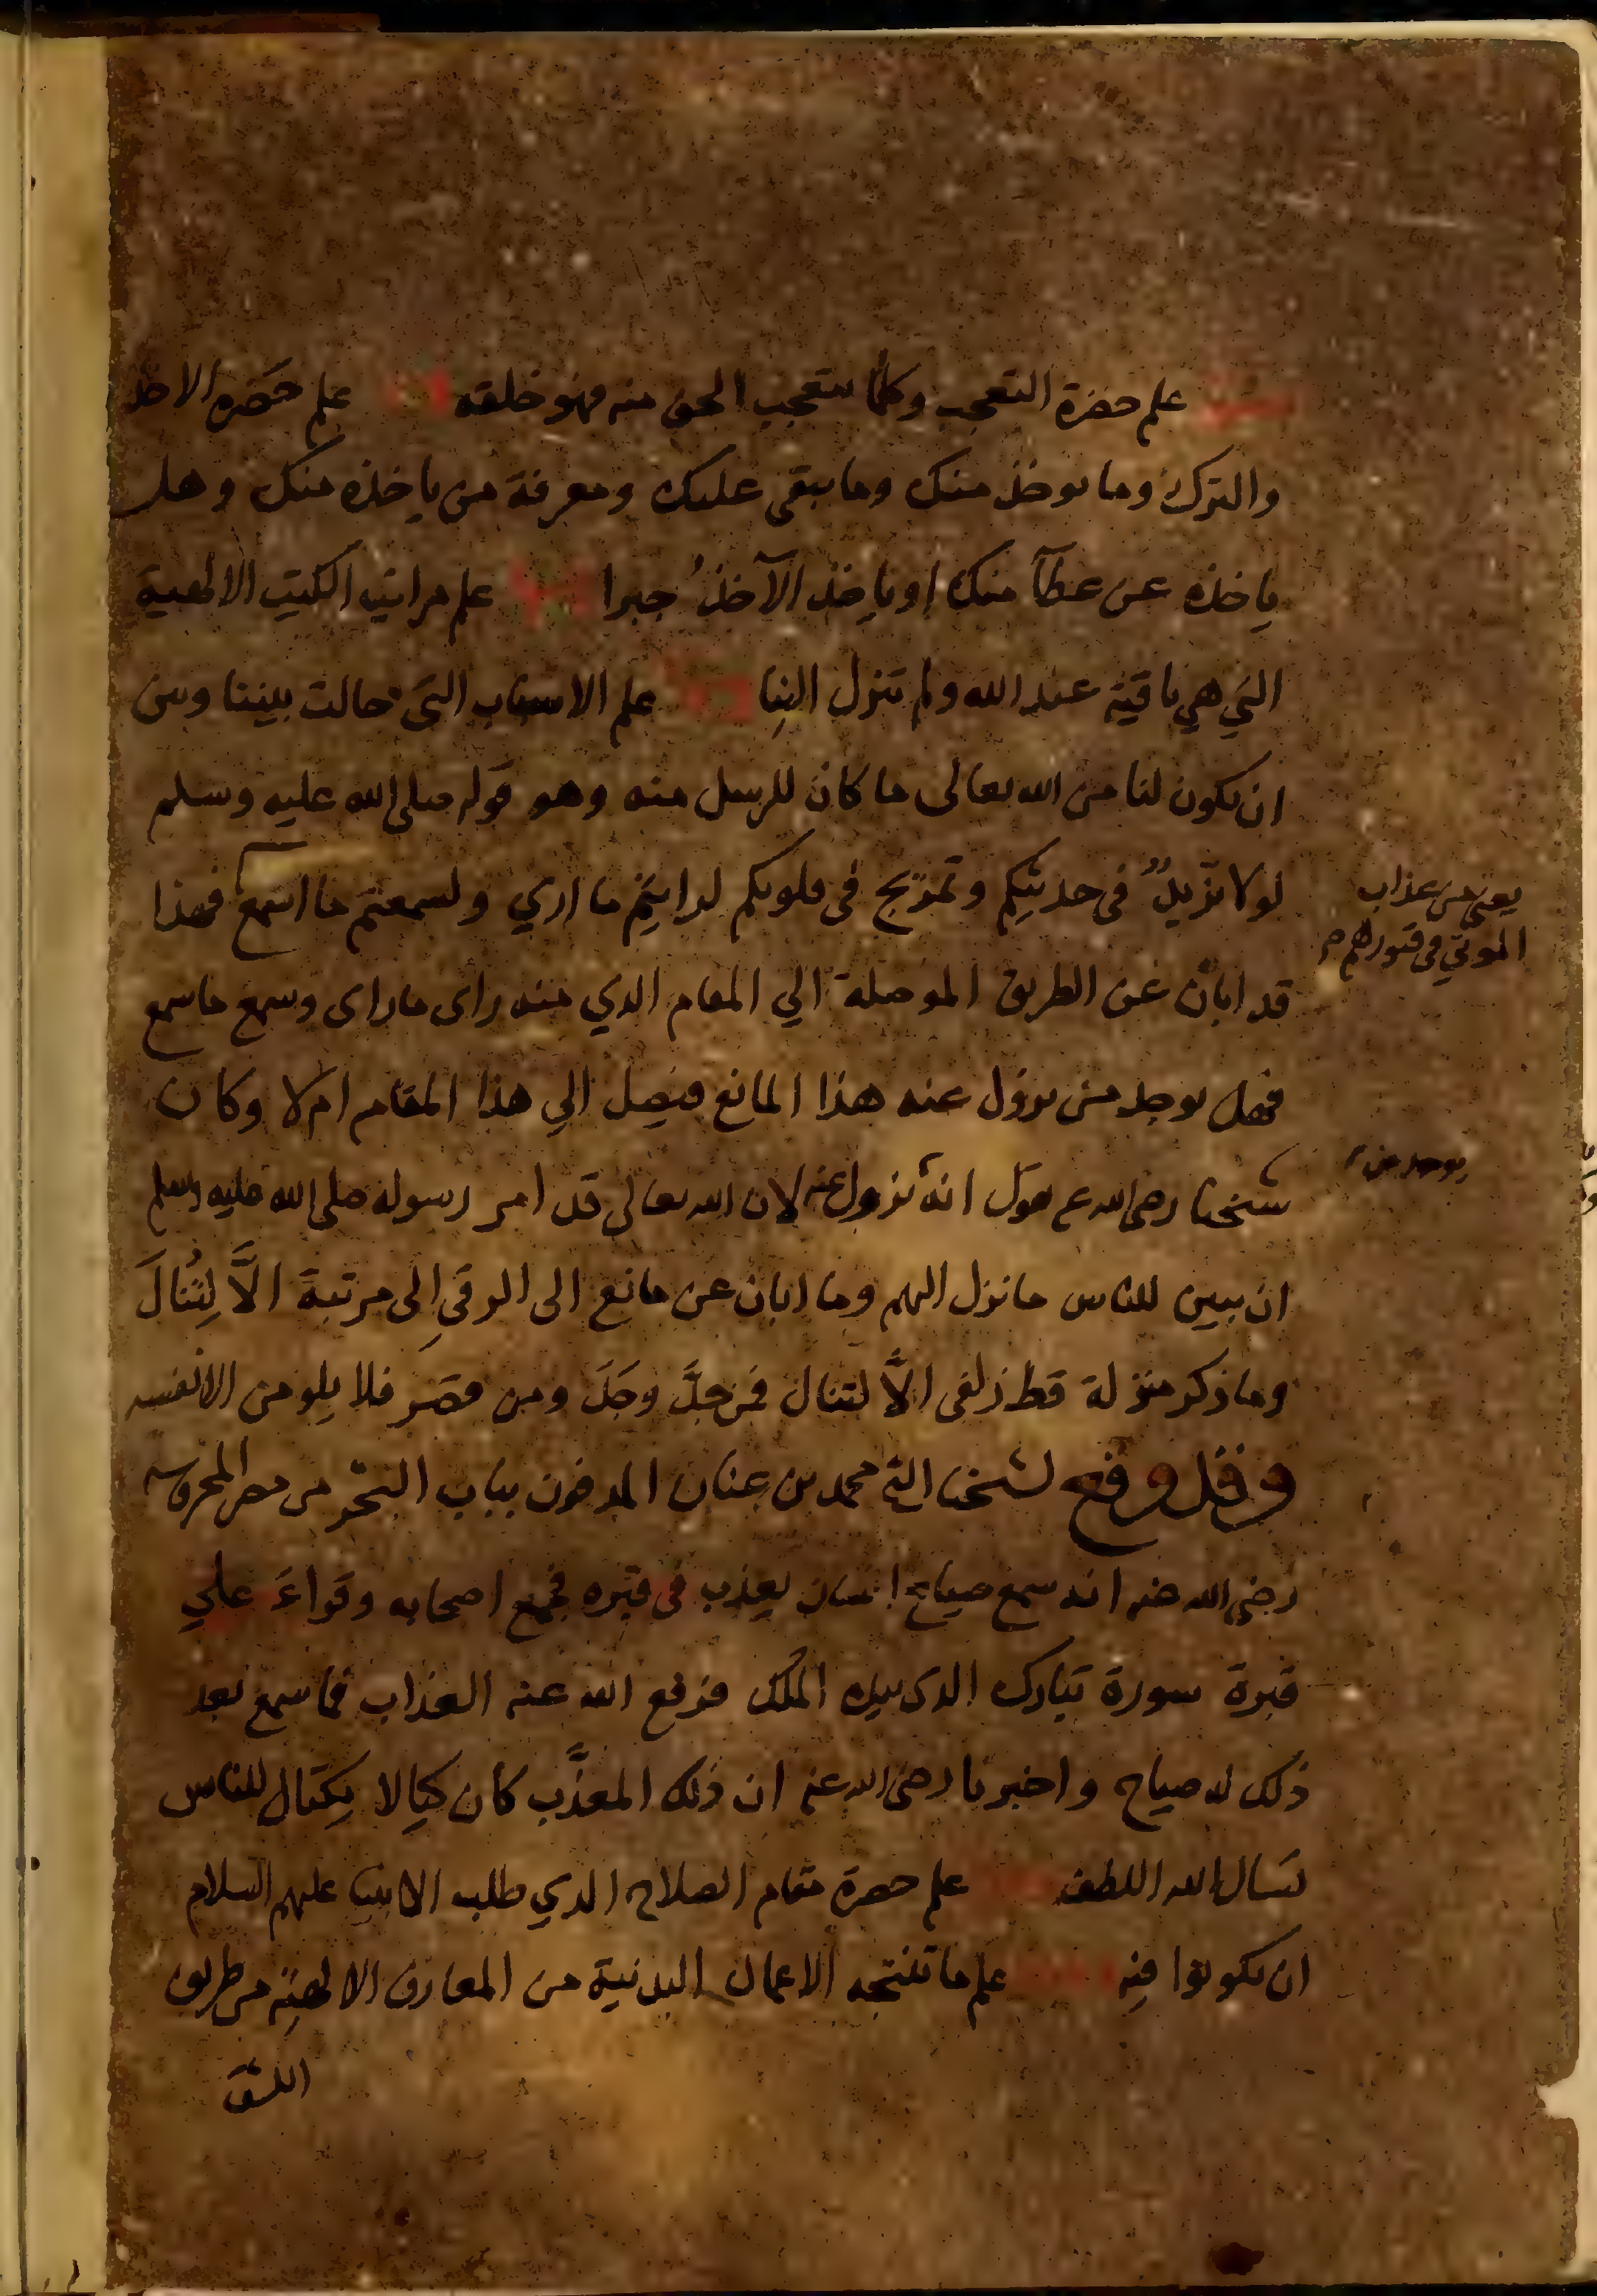 علم حضرة التعجب وكلما يتعجب الحق منه فهو خلقه علم حضرة الاخذ
والترك وما يوخذ منك وما يبقى عليك ومعرفة من ياخذه منك وهل
ياخذه عن عطآ منك او ياخذ الآخذُ جبرا علم مراتب الكتب الالهية
التي هي باقية عند الله ولم تنزل الينا علم الاسباب التي حالت بيننا وبين
ان يكون لنا من الله تعالى ما كان للرسل منه وهو قوله صلى الله عليه وسلم
لولا تزيدٌ في حديثكم وتمزيج في قلوبكم لرايتم ما اري ولسمعتم ما اسمع فهذا
يعني من عذاب
الموتي في قبورهم
قد ابان عن الطريق الموصلة الي المقام الذي منه راى ما راى وسمع ما سمع
فهل يوجد من يزول عنه هذا المانع فيصل الي هذا المقام ام لا وكان
يوجد من
شيخنا رضي الله عنه يقول انه يزول عنه لان الله تعالى قد امر رسوله صلى الله عليه وسلم
ان يبين للناس ما نزل اليهم وما ابان عن مانع الى الرقي الى مرتبة الَّا لِتُنالَ
وما ذكر منزلة قط زلفى الَّا لتنال فمن جدَّ وجَدَ ومن قصر فلا يلومن الا نفسه
وقد وقع لشيخنا الشيخ محمد بن عنان المدفون بباب البحر من مصر المحروسة
رضي الله عنه انه سمع صياح انسان يعذب في قبره فجمع اصحابه وقراء علي
قبرة سورة تبارك الذي بيده الملك فرفع الله عنه العذاب فما سمع بعد
ذلك له صياح واخبرنا رضي الله عنه ان ذلك المعذَّب كان كيالا يكتال للناس
نسال الله اللطف علم حضرة مقام الصلاح الذي طلب الانبيا عليهم السلام
ان يكونوا فيه علم ما تنتجه الاعمال البدنية من المعارف الالهية من طريق